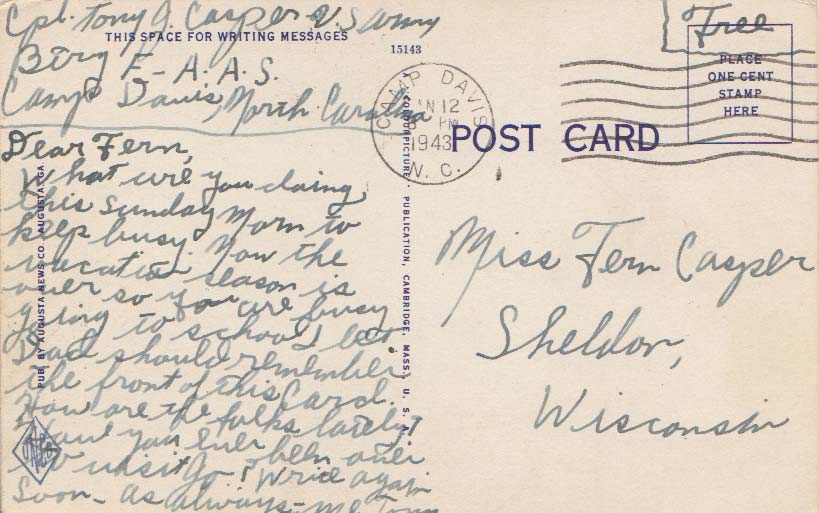 Cpl. Tony J. Casper U.S Army
THIS SPACE FOR WRITING MESSAGES
Btry E-A.A.S.
Camp Davis, North Carolina
Dear Fern,
What are you doing
this Sunday Morn to
keep busy. Now the
vacation season is
over so you are busy
going to school, I bet
Dad should remember
the front of this Card.
How are the folks lately?
Have you ever been over
to visit Jo? Write again
Soon - as always - Me Tony
PUB. BY AUGUSTA NEWS CO., AUGUSTA, GA.
15143
A "COLORPICTURE" PUBLICATION, CAMBRIDGE, MASS., U. S. A.
CAMP DAVIS
JAN 12
PM
1943
N. C.
POST CARD
Free
PLACE
ONE CENT
STAMP
HERE
Miss Fern Casper
Sheldon,
Wisconsin